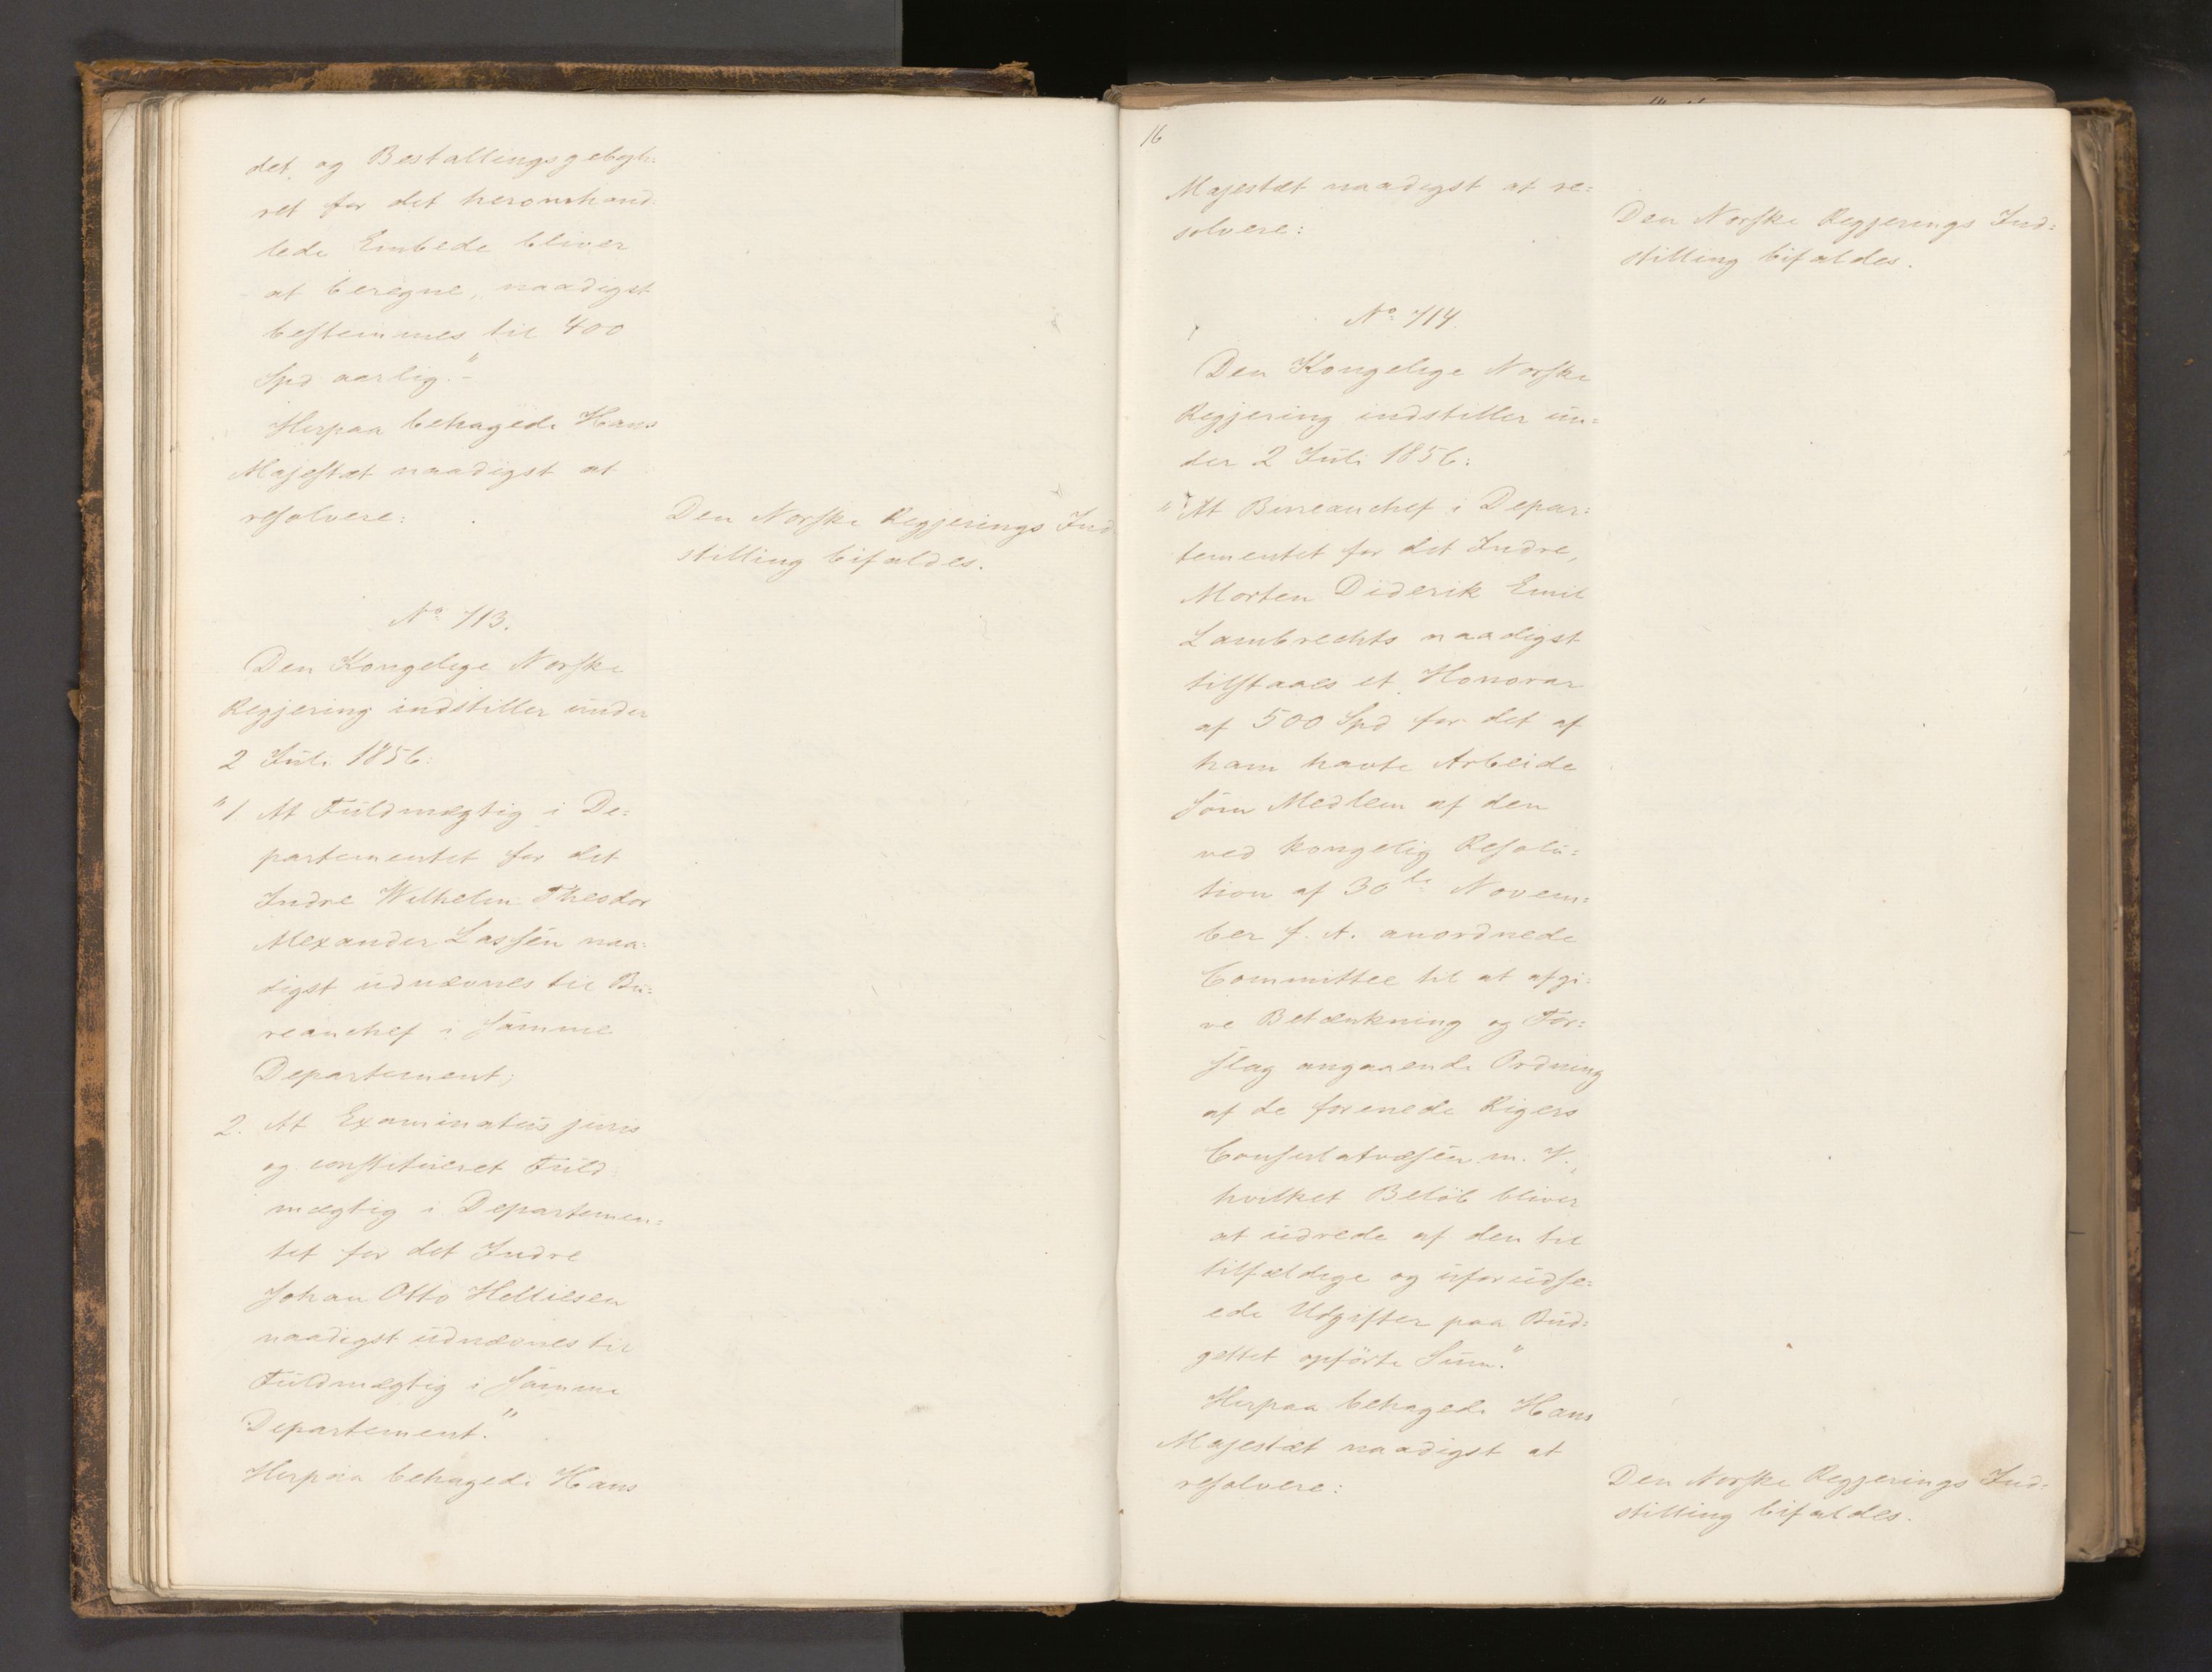 det og Bestallingsgebyh:
ret for det heromhand
lede Embede bliver
at beregne, naadigst
bestemmes til 400
Spd aarlig."-
Herpaa behagede Hans
Majestæt naadigst at
resolvere:
Den Norske Regjerings Ind
stilling bifaldes.
No 713.
Den Kongelige Norske
Regjering indstiller under
2 Juli 1856:
"1 At Fuldmægtig i De=
partementet for det
Indre Wilhelm Theodor
Alexander Lassen naa=
digst udnævnes til Bu=
reauchef i samme
Departement;
2. At Examinatus juris
og constitueret Fuld=
mægtig i Departemen=
tet for det Indre
Johan Otto Helliesen
naadigst udnævnes til
Fuldmægtig i samme
Departement."
Herpaa behagede Hans
16
Majestæt naadigst at re=
solvere:
Den Norske Regjerings Ind=
stilling bifaldes.
No 714
Den Kongelige Norske
Regjering indstiller un=
der 2 Juli 1856:
"At Bureauchef i Depar=
tementet for det Indre,
Morten Diderik Emil
Lambrechts naadigst
tilstaaes et Honorar
af 500 Spd for det af
ham havte Arbeide
som Medlem af den
ved kongelig Resolu=
tion af 30te Novem=
ber f. A. anordnede
Committee til at afgi=
ve Betænkning og For=
slag angaaende Ordning
af de forenede Rigers
Consulatvæsen m. V.,
hvilket Beløb bliver
at udrede af den til
tilfældige og uforudse=
ede Udgifter paa Bud=
gettet opførte Sum."
Herpaa behagede Hans
Majestæt naadigst at
resolvere:
Den Norske Regjerings Ind=
stilling bifaldes.